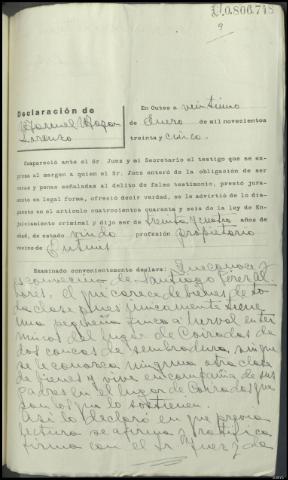 9
Declaración de
Manuel
Lorenzo
En Outes a veintiuno
de Enero de mil novecientos
treinta y cinco.
Compareció ante el Sr. Juez y mi Secretario el testigo que se expresa al margen a quien el Sr. Juez
enteró de la obligación de ser
veraz y penas señaladas al delito de falso testimonio, prestó juramento
en legal forma, ofreció decir verdad, se le advirtió de lo dispuesto
en el artículo cuatrocientos cuarenta y seis de la ley de Enjuiciamiento
criminal y dijo ser de treinta y cuatro años de
edad, de estado viudo profesión propietario
vecino de Entines
Examinado convenientemente declara: Que conoce y
es convecino de Santiago
el que carece de bienes de toda
clase pues únicamente tiene
una pequeña finca
del lugar de Cornadas de
dos concas de sembradura, sin que
se le conozca ninguna otra clase
de bienes y vive en compañía de sus
padres en el lugar de Cornadas que
son los que lo sostienen.
Así lo declaró en que previa
lectura se afirma y ratifica
firma con el Sr Juez y da